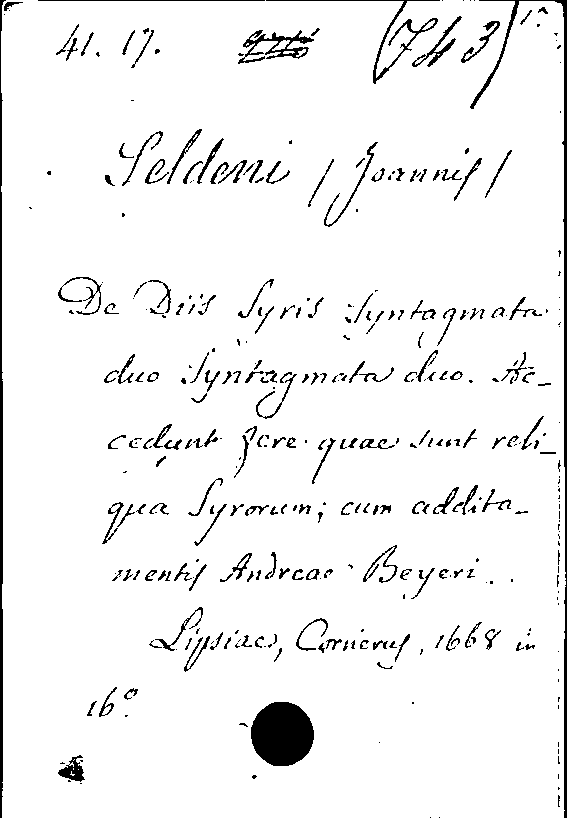 41. 17. (743) 1^a
Seldeni / Joannis /
De Diis Syris Syntagmata
duo Syntagmata duo. Ac-
cedunt fere quae sunt reli-
qua Syrorum; cum addita-
mentis Andreae Beyeri.
Lipsiae, Cornerus, 1668 in
16°